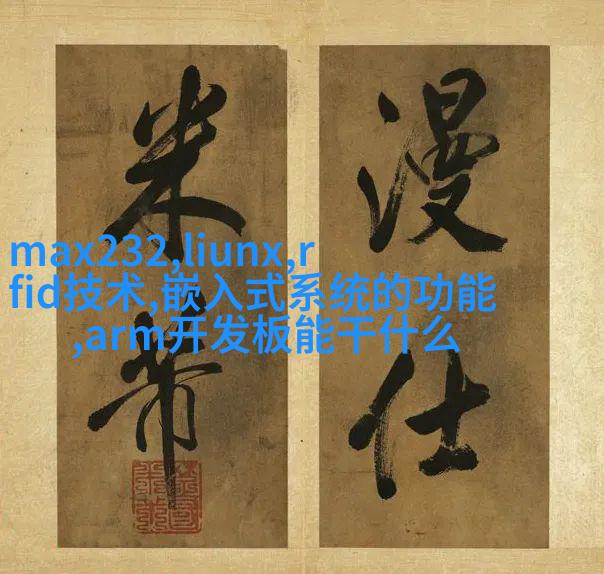 max232,liunx,r
fid技术,嵌入式系统的功能
,arm开发板能干什么
漫仕
米芾